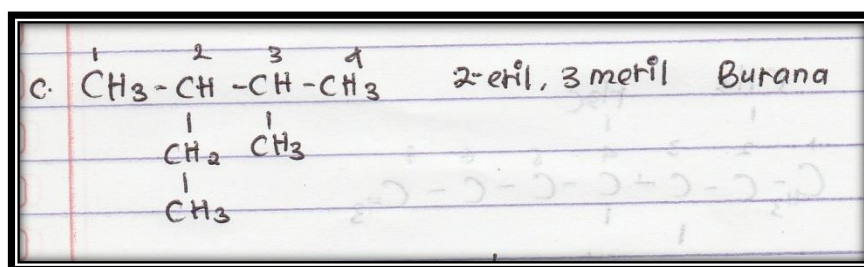 1 2 3 4
C. CH3 - CH - CH - CH3 2-etil, 3 metil Butana
CH2 CH3
CH3